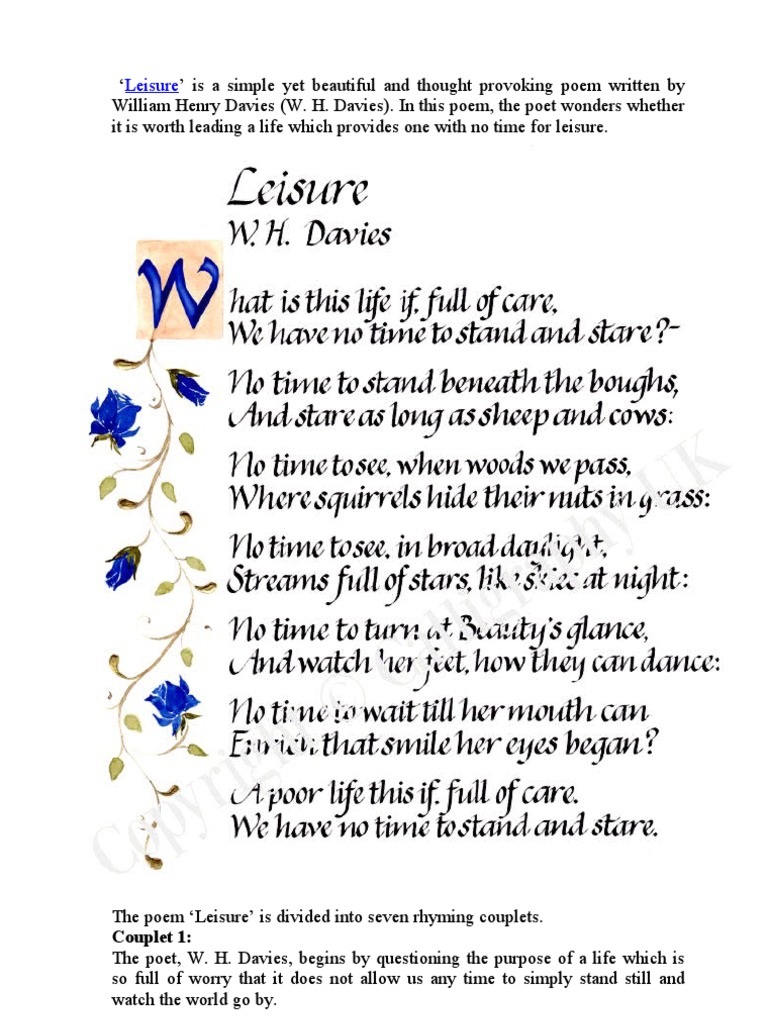 ‘Leisure’ is a simple yet beautiful and thought provoking poem written by
William Henry Davies (W. H. Davies). In this poem, the poet wonders whether
it is worth leading a life which provides one with no time for leisure.
Leisure
W. H. Davies
What is this life if, full of care,
We have no time to stand and stare?-
No time to stand beneath the boughs,
And stare as long as sheep and cows:
No time to see, when woods we pass,
Where squirrels hide their nuts in grass:
No time to see, in broad daylight,
Streams full of stars, like skies at night:
No time to turn at Beauty's glance,
And watch her feet, how they can dance:
No time to wait till her mouth can
Enrich that smile her eyes began?
A poor life this if, full of care.
We have no time to stand and stare.
Copyright © Calligraphy UK
The poem ‘Leisure’ is divided into seven rhyming couplets.
Couplet 1:
The poet, W. H. Davies, begins by questioning the purpose of a life which is
so full of worry that it does not allow us any time to simply stand still and
watch the world go by.